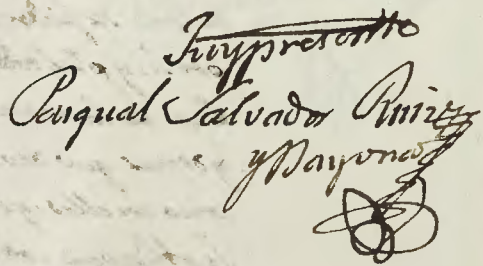 Fuy presente
Pasqual Salvador Ruiz
y